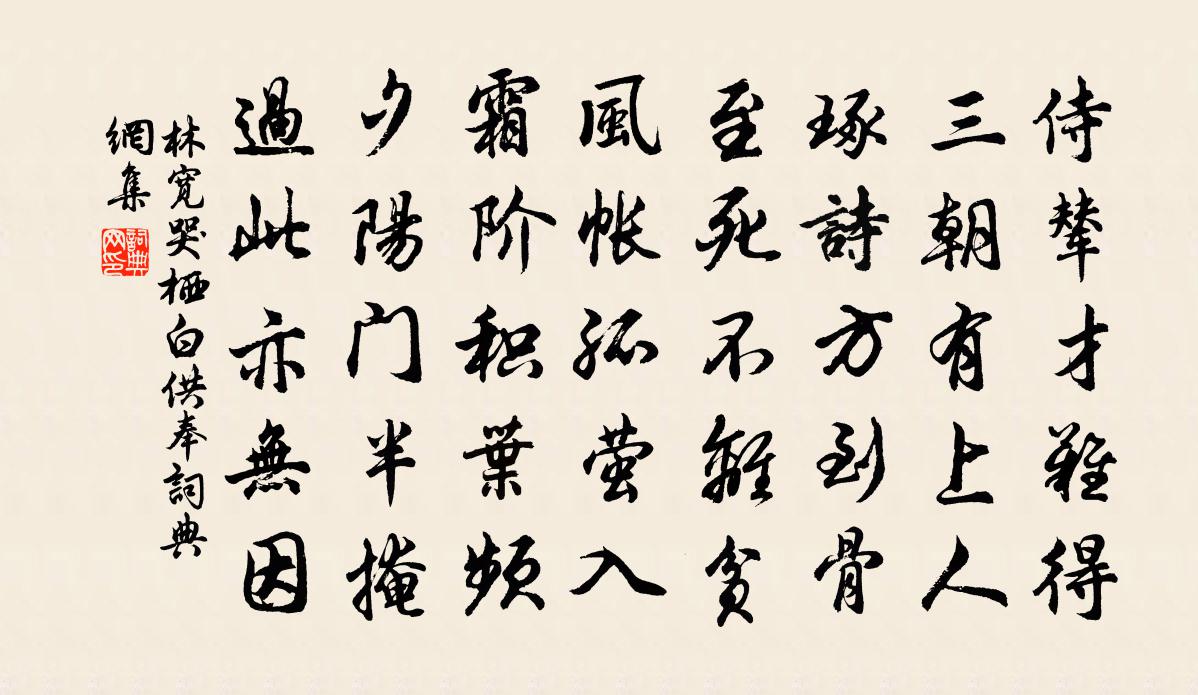 侍輦才難得
三朝有上人
琢詩方到骨
至死不離貧
風帐孤萤入
霜阶积葉频
夕陽门半掩
過此亦無因
林宽哭栖白供奉詞典
網集
詞典
网印